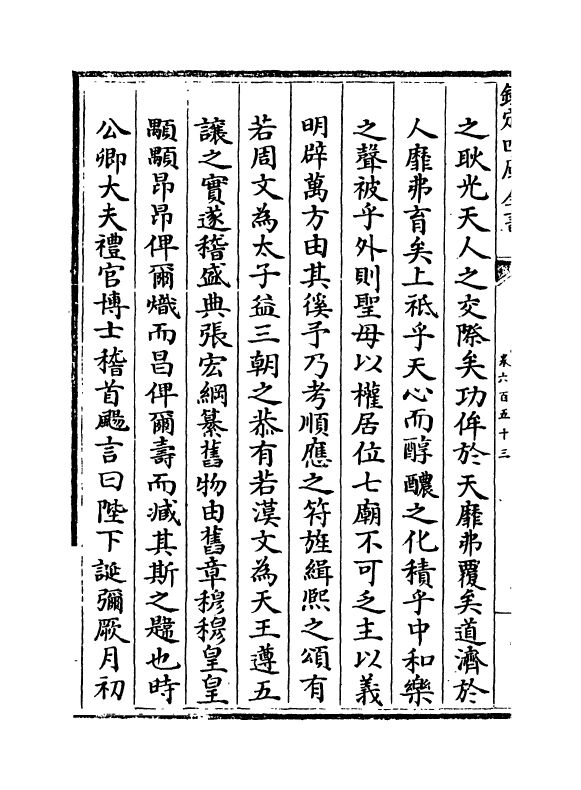 欽定四庫全書
卷六百五十三
之耿光天人之交際矣功侔於天靡弗覆矣道濟於
人靡弗育矣上祗乎天心而醇醲之化積乎中和樂
之聲被乎外則聖母以權居位七廟不可乏主以義
明辟萬方由其徯予乃考順應之符旌緝熙之頌有
若周文為太子益三朝之恭有若漢文為天王遵五
讓之實遂稽盛典張宏綱纂舊物由舊章穆穆皇皇
顒顒昂昂俾爾熾而昌俾爾壽而臧其斯之韙也時
公卿大夫禮官博士稽首颺言曰陛下誕彌厥月初